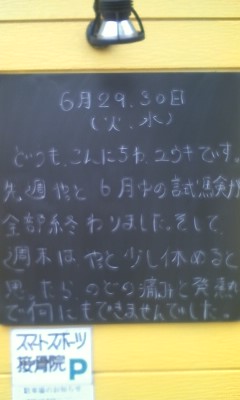 6月29.30日
(火.水)
どうも、こんにちわ、ユウキです。
先週やっと6月中の試験が
全部終わりました。そして、
週末はやっと少し休めると
思ったら、のどの痛みと発熱
で何にもできませんでした。
スマートスポーツ
接骨院 P
駐車場のお知らせ